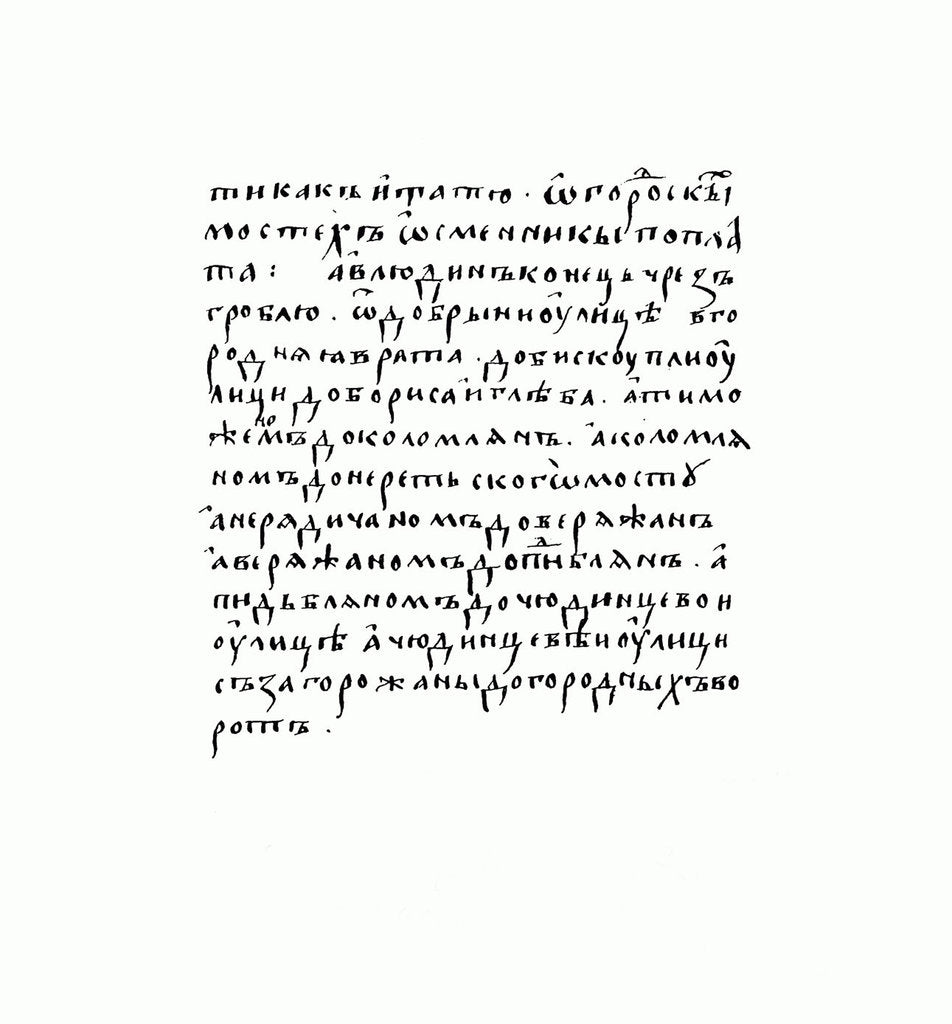 тикакъ и татю · ѿ горо͏ⷣскꙑ
мостехъ ѿсменникы поплⷶ
та : а в людинъ конець чрезъ
греблю . ѿ добрыни оулицѣ в го
родняꙗ врата · до бискоупли оу
лици до бориса и глѣба . а тимо
жеⷩ҇омъ до коломлянъ . а коломля
номъ до неретьского мосту
а нерядичаномъ до вережанъ
а верѧжаномъ до пиⷣблянъ . а
пидьбляномъ до чюдинцевои
оулицѣ а чюдинцевѣи оулици
съ загорожаны до городныхъ во
ротъ .